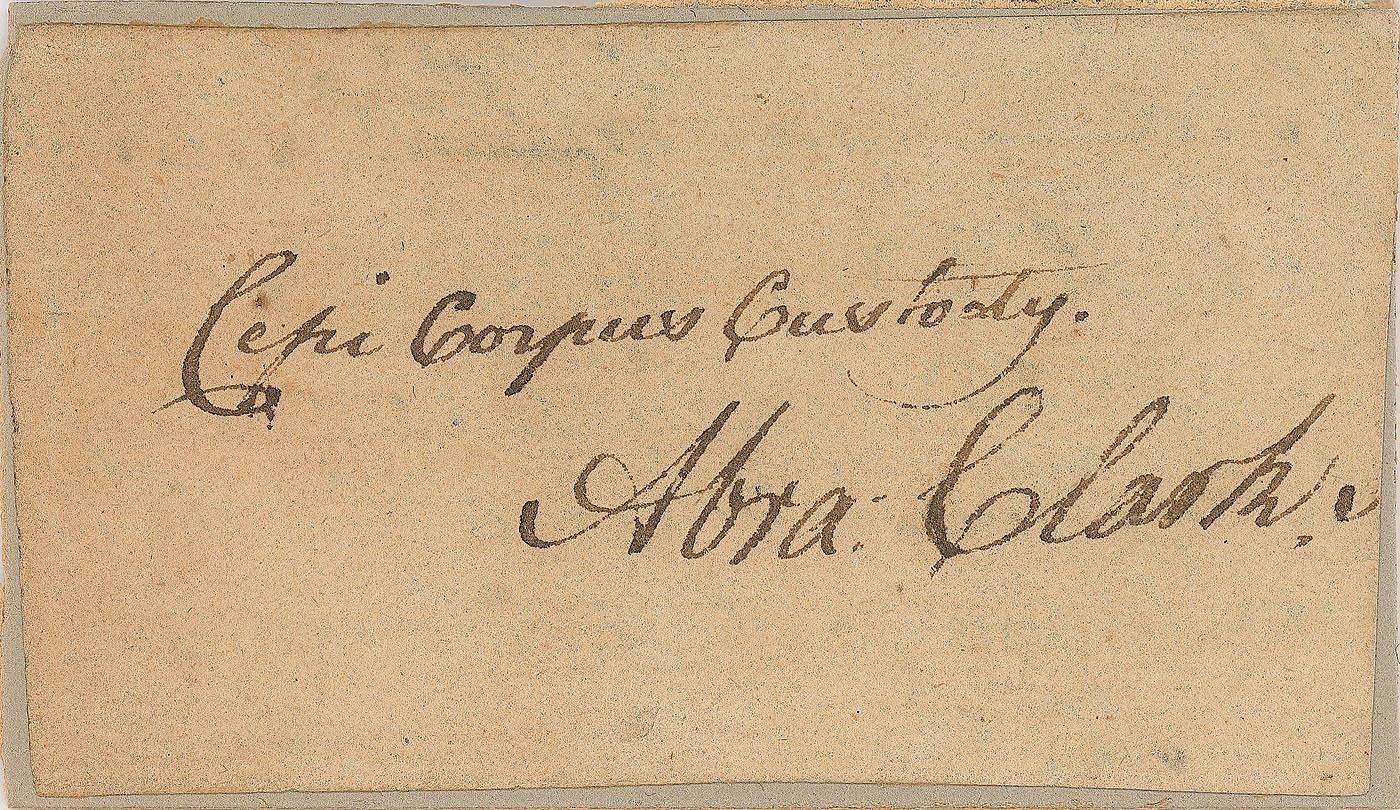 Cepi Corpus Custody.
Abra: Clark.